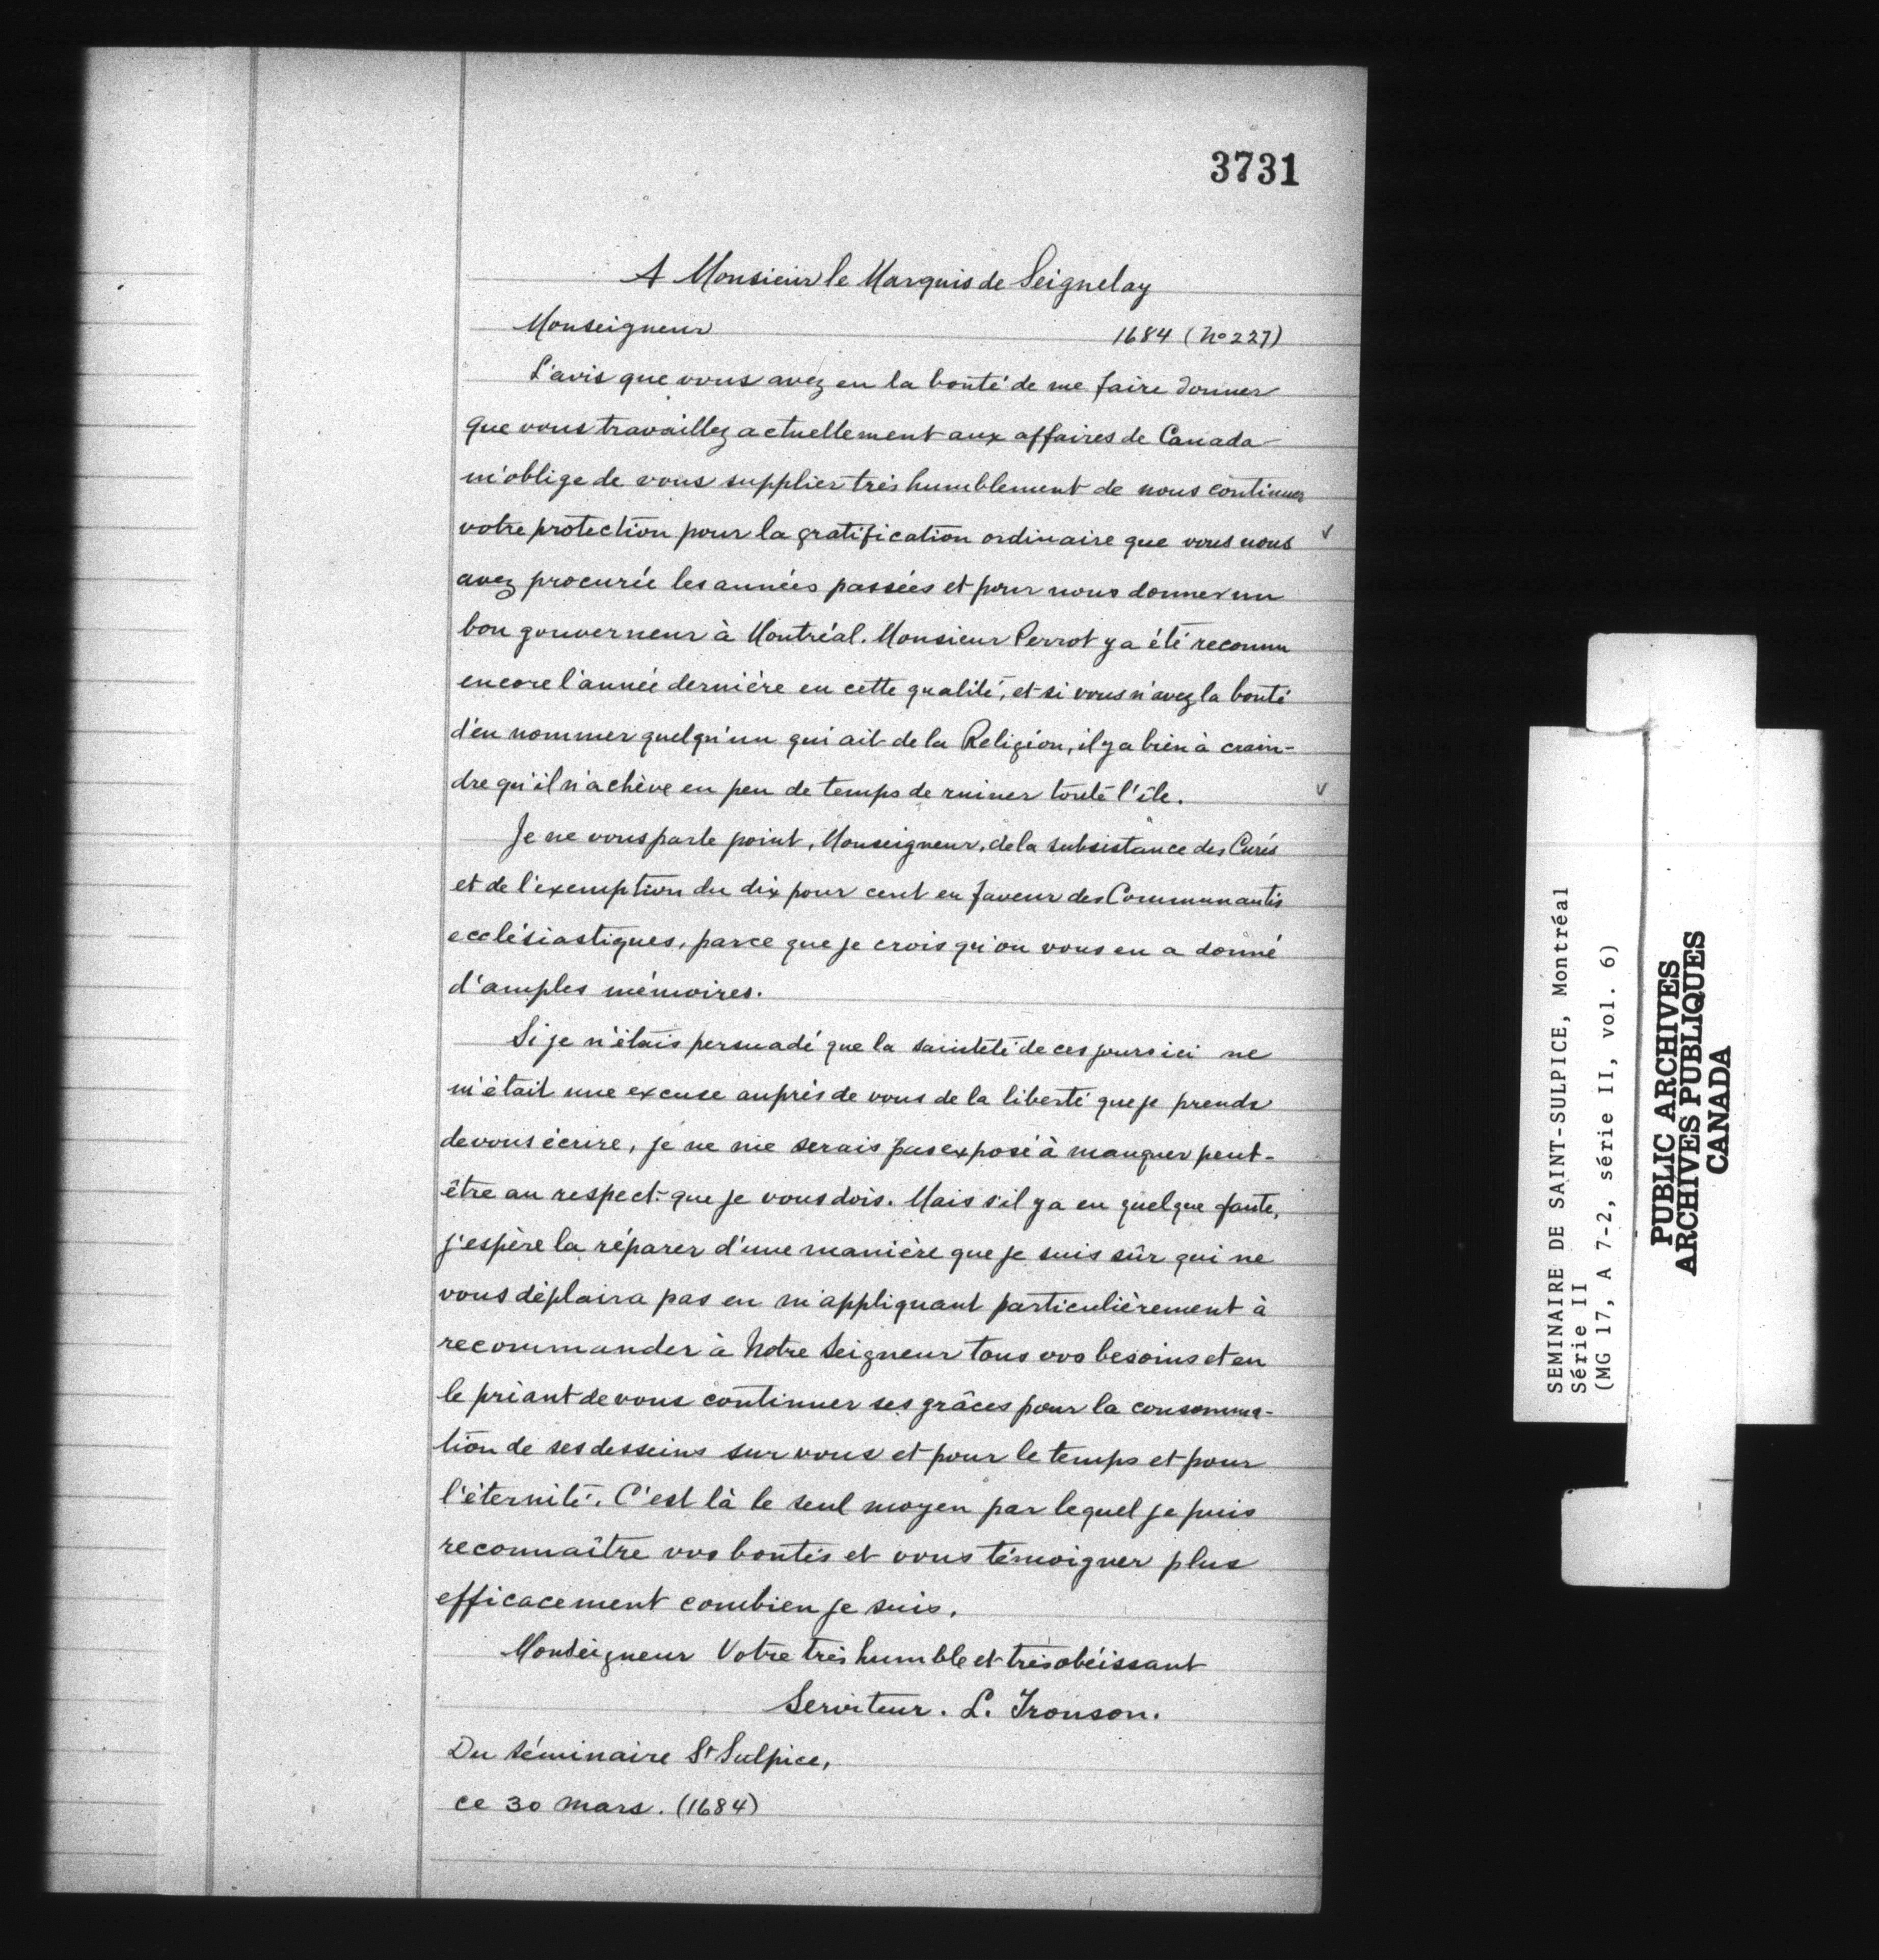 3731
A Monsieur le Marquis de Seignelay
Monseigneur 1684 (No 227)
L'avis que vous avez eu la bonté de me faire donner
que vous travaillez actuellement aux affaires de Canada
m'oblige de vous supplier très humblement de nous continuer
votre protection pour la gratification ordinaire que vous nous
avez procurée les années passées et pour nous donner un
bon gouverneur à Montréal. Monsieur Perrot y a été reconnu
encore l'année dernière en cette qualité, et si vous n'avez la bonté
d'en nommer quelqu'un qui ait de la Religion, il y a bien à crain-
dre qu'il n'achève en peu de temps de ruiner toute l'île.
Je ne vous parle point, Monseigneur, de la subsistance des Curés
et de l'exemption du dix pour cent en faveur des Communautés
ecclésiastiques, parce que je crois qu'on vous en a donné
d'amples mémoires.
Si je n'étais persuadé que la sainteté de ces jours ici ne
m'était une excuse auprès de vous de la liberté que je prends
de vous écrire, je ne me serais pas exposé à manquer peut-
être au respect que je vous dois. Mais s'il y a eu quelque faute,
j'espère la réparer d'une manière que je suis sûr qui ne
vous déplaira pas en m'appliquant particulièrement à
recommander à Notre Seigneur tous vos besoins et en
le priant de vous continuer ses grâces pour la consomma-
tion de ses desseins sur vous et pour le temps et pour
l'éternité. C'est là le seul moyen par lequel je puis
reconnaître vos bontés et vous témoigner plus
efficacement combien je suis,
Monseigneur Votre très humble et très obéissant
Serviteur. L. Tronson.
Du séminaire St Sulpice,
ce 30 mars. (1684)
SEMINAIRE DE SAINT-SULPICE, Montréal
Série II
(MG 17, A 7-2, série II, vol. 6)
PUBLIC ARCHIVES
ARCHIVES PUBLIQUES
CANADA